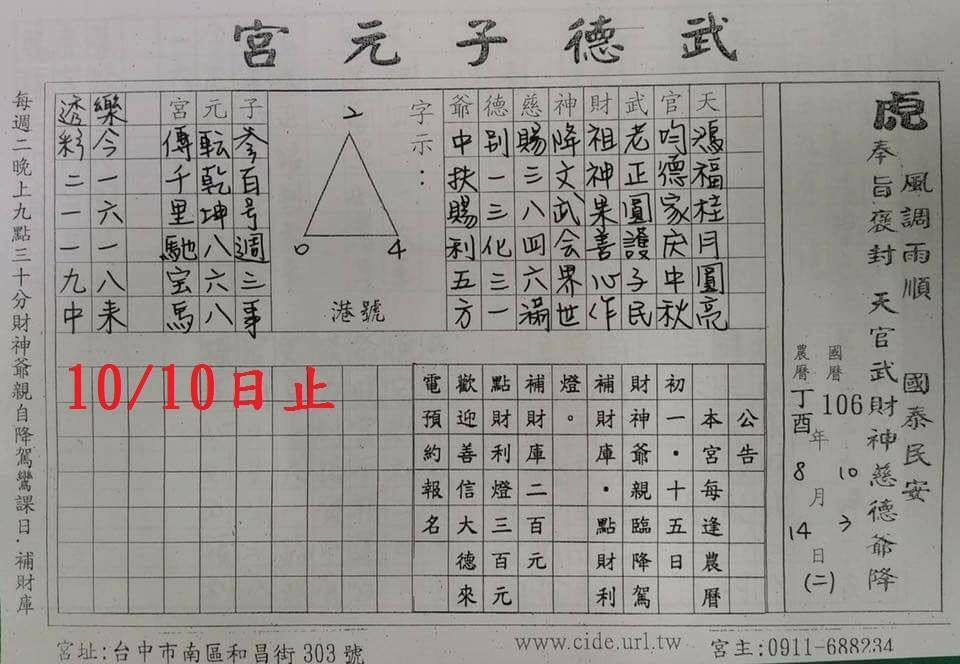 武德子元宮
虎
風調雨順 國泰民安
奉旨褒封 天官武財神慈德爺降
國曆 106 年 10 月 3 日
農曆 丁酉 8 14 (二)
天鴻福桂月圓亮
官均德家庆中秋
武老正圓護子民
財祖神果善心作
神降文武会界世
慈賜三八四六滿
德别一三化三一
爺中扶賜利五方
字示：
2
0 4
港號
子參百号週三事
元転乾坤八六八
宮傳千里馳宝馬
樂今一六一八来
透彩二一一九中
公告
本宮每逢農曆
初一．十五日
財神爺親臨降駕
補財庫．點財利
燈。
補財庫二百元
點財利燈三百元
歡迎善信大德來
電預約報名
10/10日止
每週二晚上九點三十分財神爺親自降駕鸞課日．補財庫
宮址:台中市南區和昌街 303 號
www.cide.url.tw
宮主:0911-688234